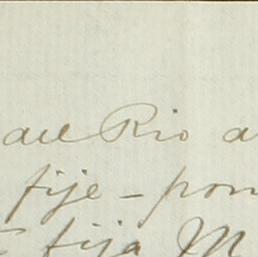 del Rio a
fije - pon
fija M